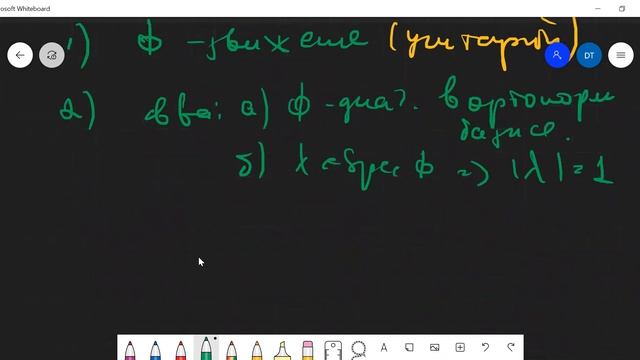 osoft Whiteboard
DT
1) Ф - движение (унитарный)
2) два: а) Ф - диаг. в ортонорм
базисе.
б) λ ∈ Spec Ф => |λ| = 1
A